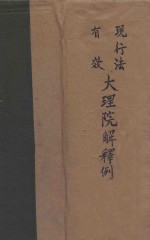 現行法
有效
大理院解釋例